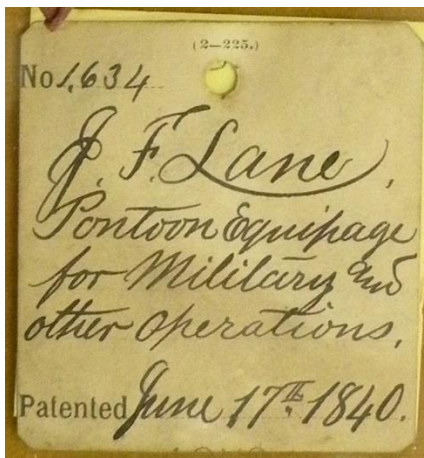 (2—225.)
No 1,634
J. F. Lane,
Pontoon Equipage
for Military and
other operations.
Patented June 17th. 1840.